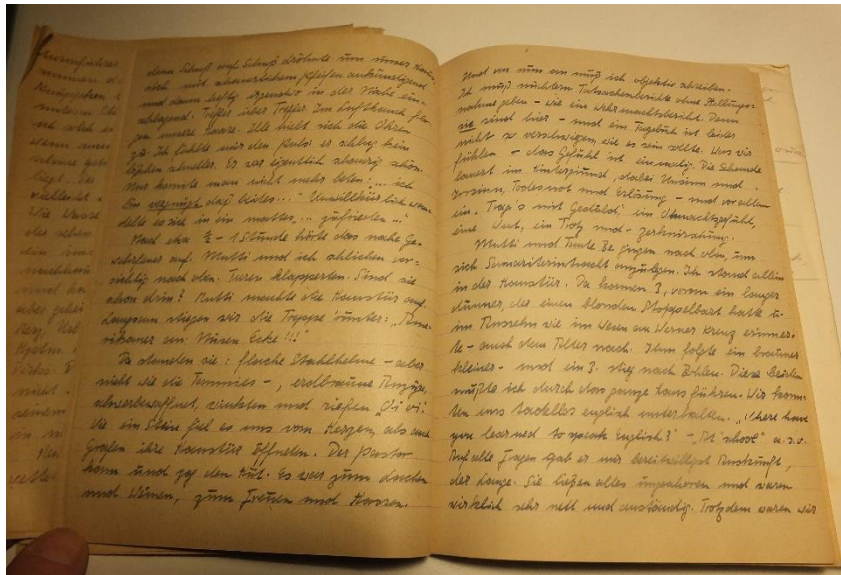 denn Schuß auf Schuß dröhnte um unser Haus,
sich mit schauerlichem Pfeifen ankündigend
und dann heftig irgendwo in der Nähe ein-
schlagend. Treffer über Treffer. Im Luftdruck flo-
gen unsere Haare. Alle hielt sich die Ohren
zu. Ich fühlte mir den Puls: er schlug kein
bißchen schneller. Es war eigentlich schaurig schön.
Nur konnte man nicht mehr beten: „... ich
bin vergnügt daß beides..." Unwillkürlich wan-
delte es sich in bin matter, „... zufrieden..."
Nach etwa ¾ - 1 Stunde hörte das nahe Ge-
wehrfeuer auf. Mutti und ich schlichen vor-
sichtig nach oben. Türen klapperten. Sind sie
schon drin? Mutti machte die Haustür auf.
Langsam stiegen wir die Treppe 'runter: „Ame-
rikaner an Ecke!!!"
Da standen sie: flache Stahlhelme - aber
nicht wie die Tommies -, erdbraune Anzüge,
schwerbewaffnet, winkten und riefen
wie ein Stein fiel es uns vom Herzen, als auch
Grafen ihre Haustür öffneten. Der Pastor
kam und zog den Hut. Es war zum Lachen
und Weinen, zum Freuen und Hassen.
Und von nun an muß ich objektiv schreiben.
Ich muß nüchtern Tatsachenberichte ohne Stellung-
nahme geben - wie ein Wehrmachtsbericht. Denn
sie sind hier - und ein Tagebuch ist leider
nicht so verschwiegen, wie es sein sollte. Was wir
fühlen - das Gefühl ist einmalig. Die Schande
lauert im Hintergrund, dabei Unsinn und
Irrsinn, Todesnot und Erlösung - und vor allem
ein „Trag's mit Geduld", ein Ohnmachtsgefühl,
eine Wut, ein Trotz und - Zerknirschung.
Mutti und Tante Be. gingen nach oben, um
sich Samaritertracht anzulegen. Ich stand allein
in der Haustür. Da kamen 3, vorn ein langer
dünner, der einen blonden Stoppelbart hatte u.
im Aussehn wie im Wesen an Werner Kreuz erinner-
te - auch dem Alter nach. Ihm folgte ein brauner
kleiner - und ein 3. stieg nach Bohlen. Diese beiden
mußte ich durch das ganze Haus führen. Wir konn-
ten uns tadellos englisch unterhalten. „Where have
you learned to speak English?" - „At school" u.s.w.
Auf alle Fragen gab er mir bereitwilligst Auskunft,
der Lange. Sie ließen alles ungeschoren und waren
wirklich sehr nett und anständig. Trotzdem waren wir